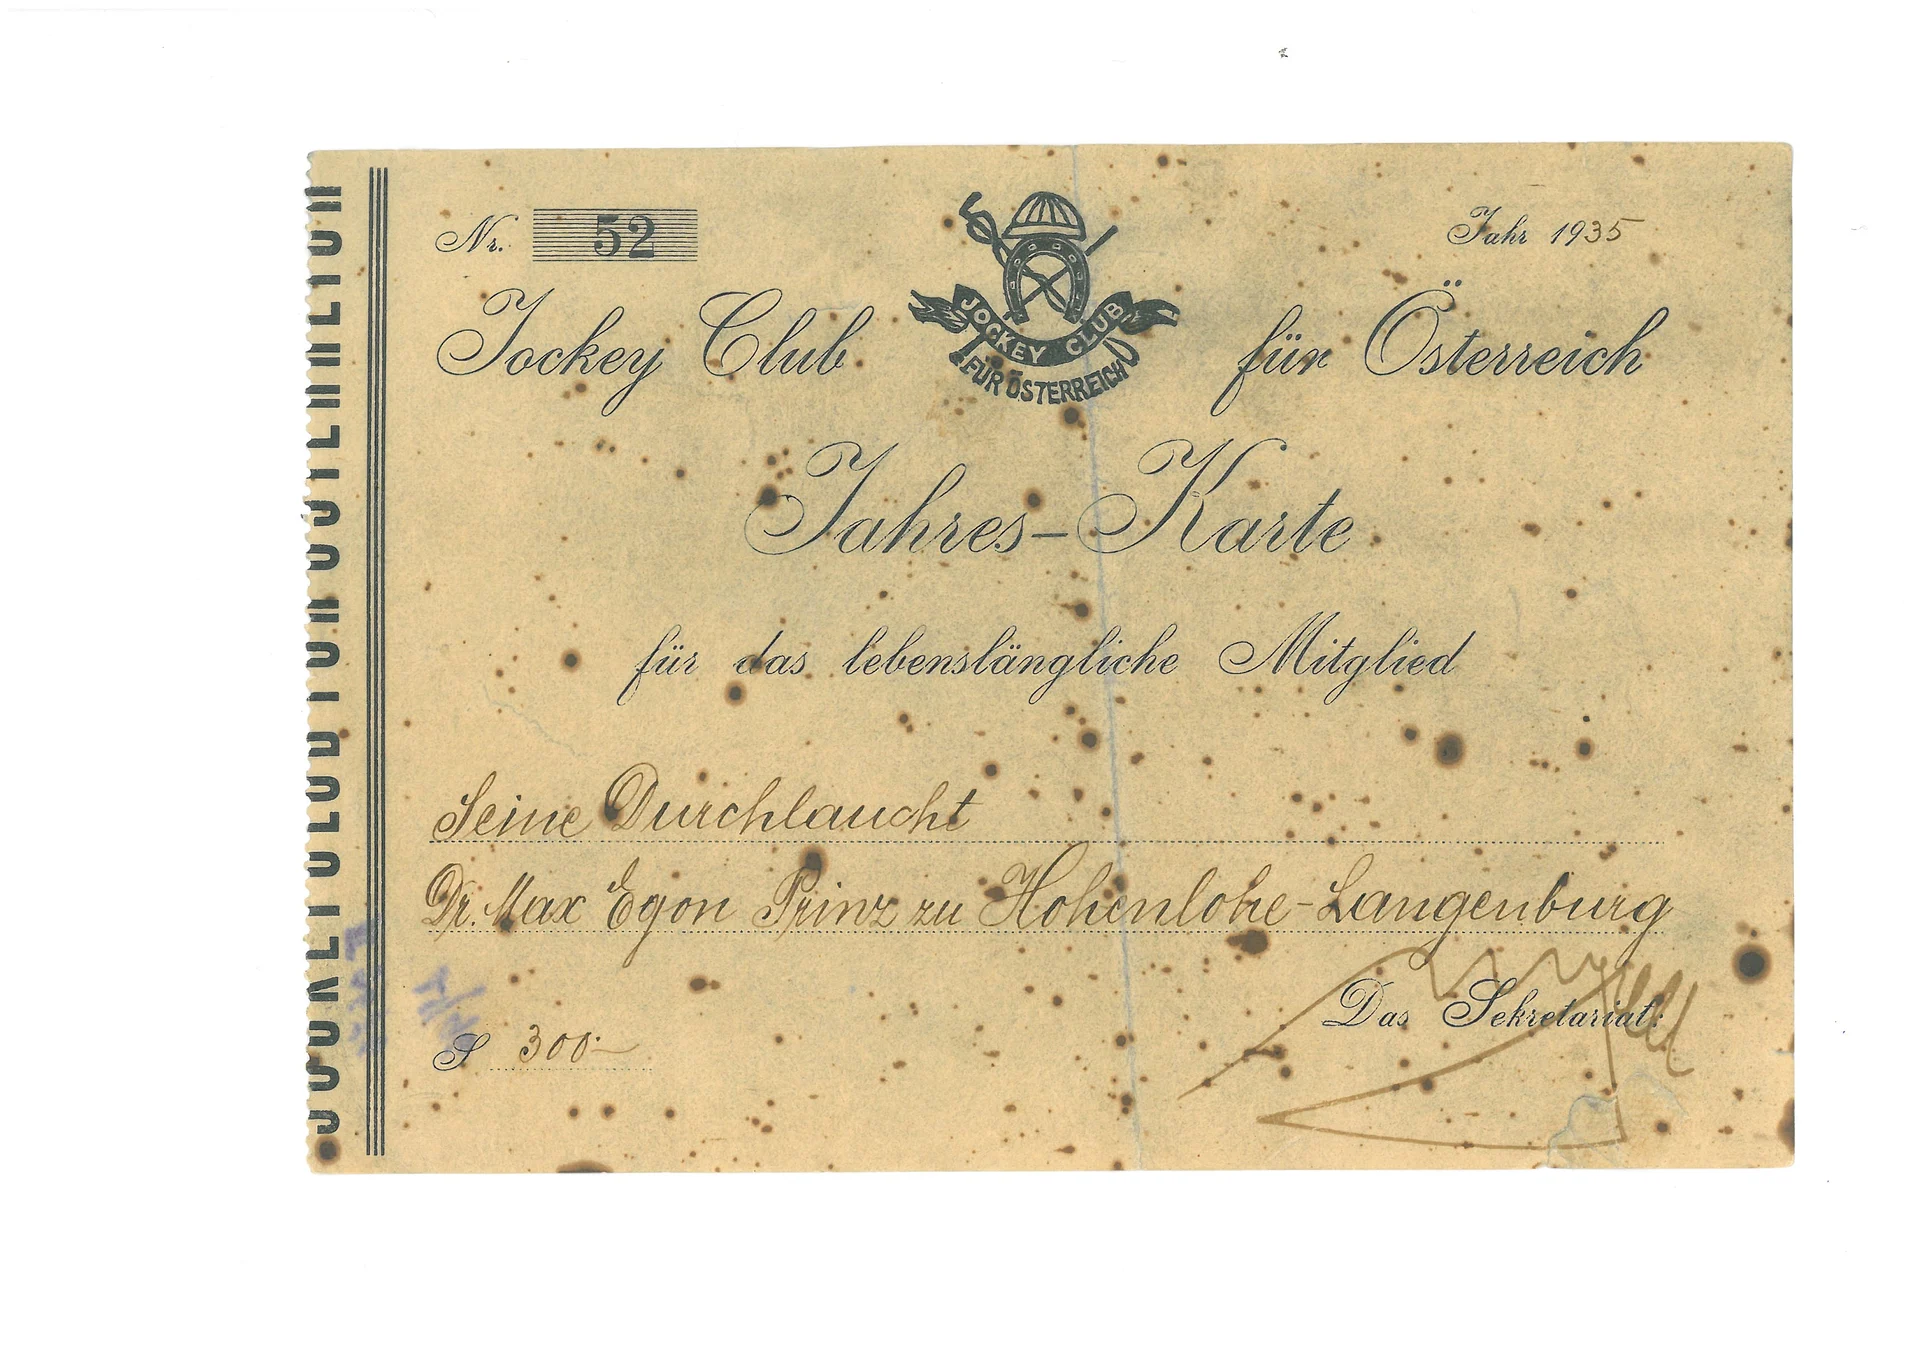 Nr. 52
Jahr 1935
JOCKEY CLUB
FÜR ÖSTERREICH
Jockey Club für Österreich
Jahres-Karte
für das lebenslängliche Mitglied
Seine Durchlaucht
Dr. Max Egon Prinz zu Hohenlohe-Langenburg
Das Sekretariat:
S 300.-
JOCKEY CLUB FÜR ÖSTERREICH